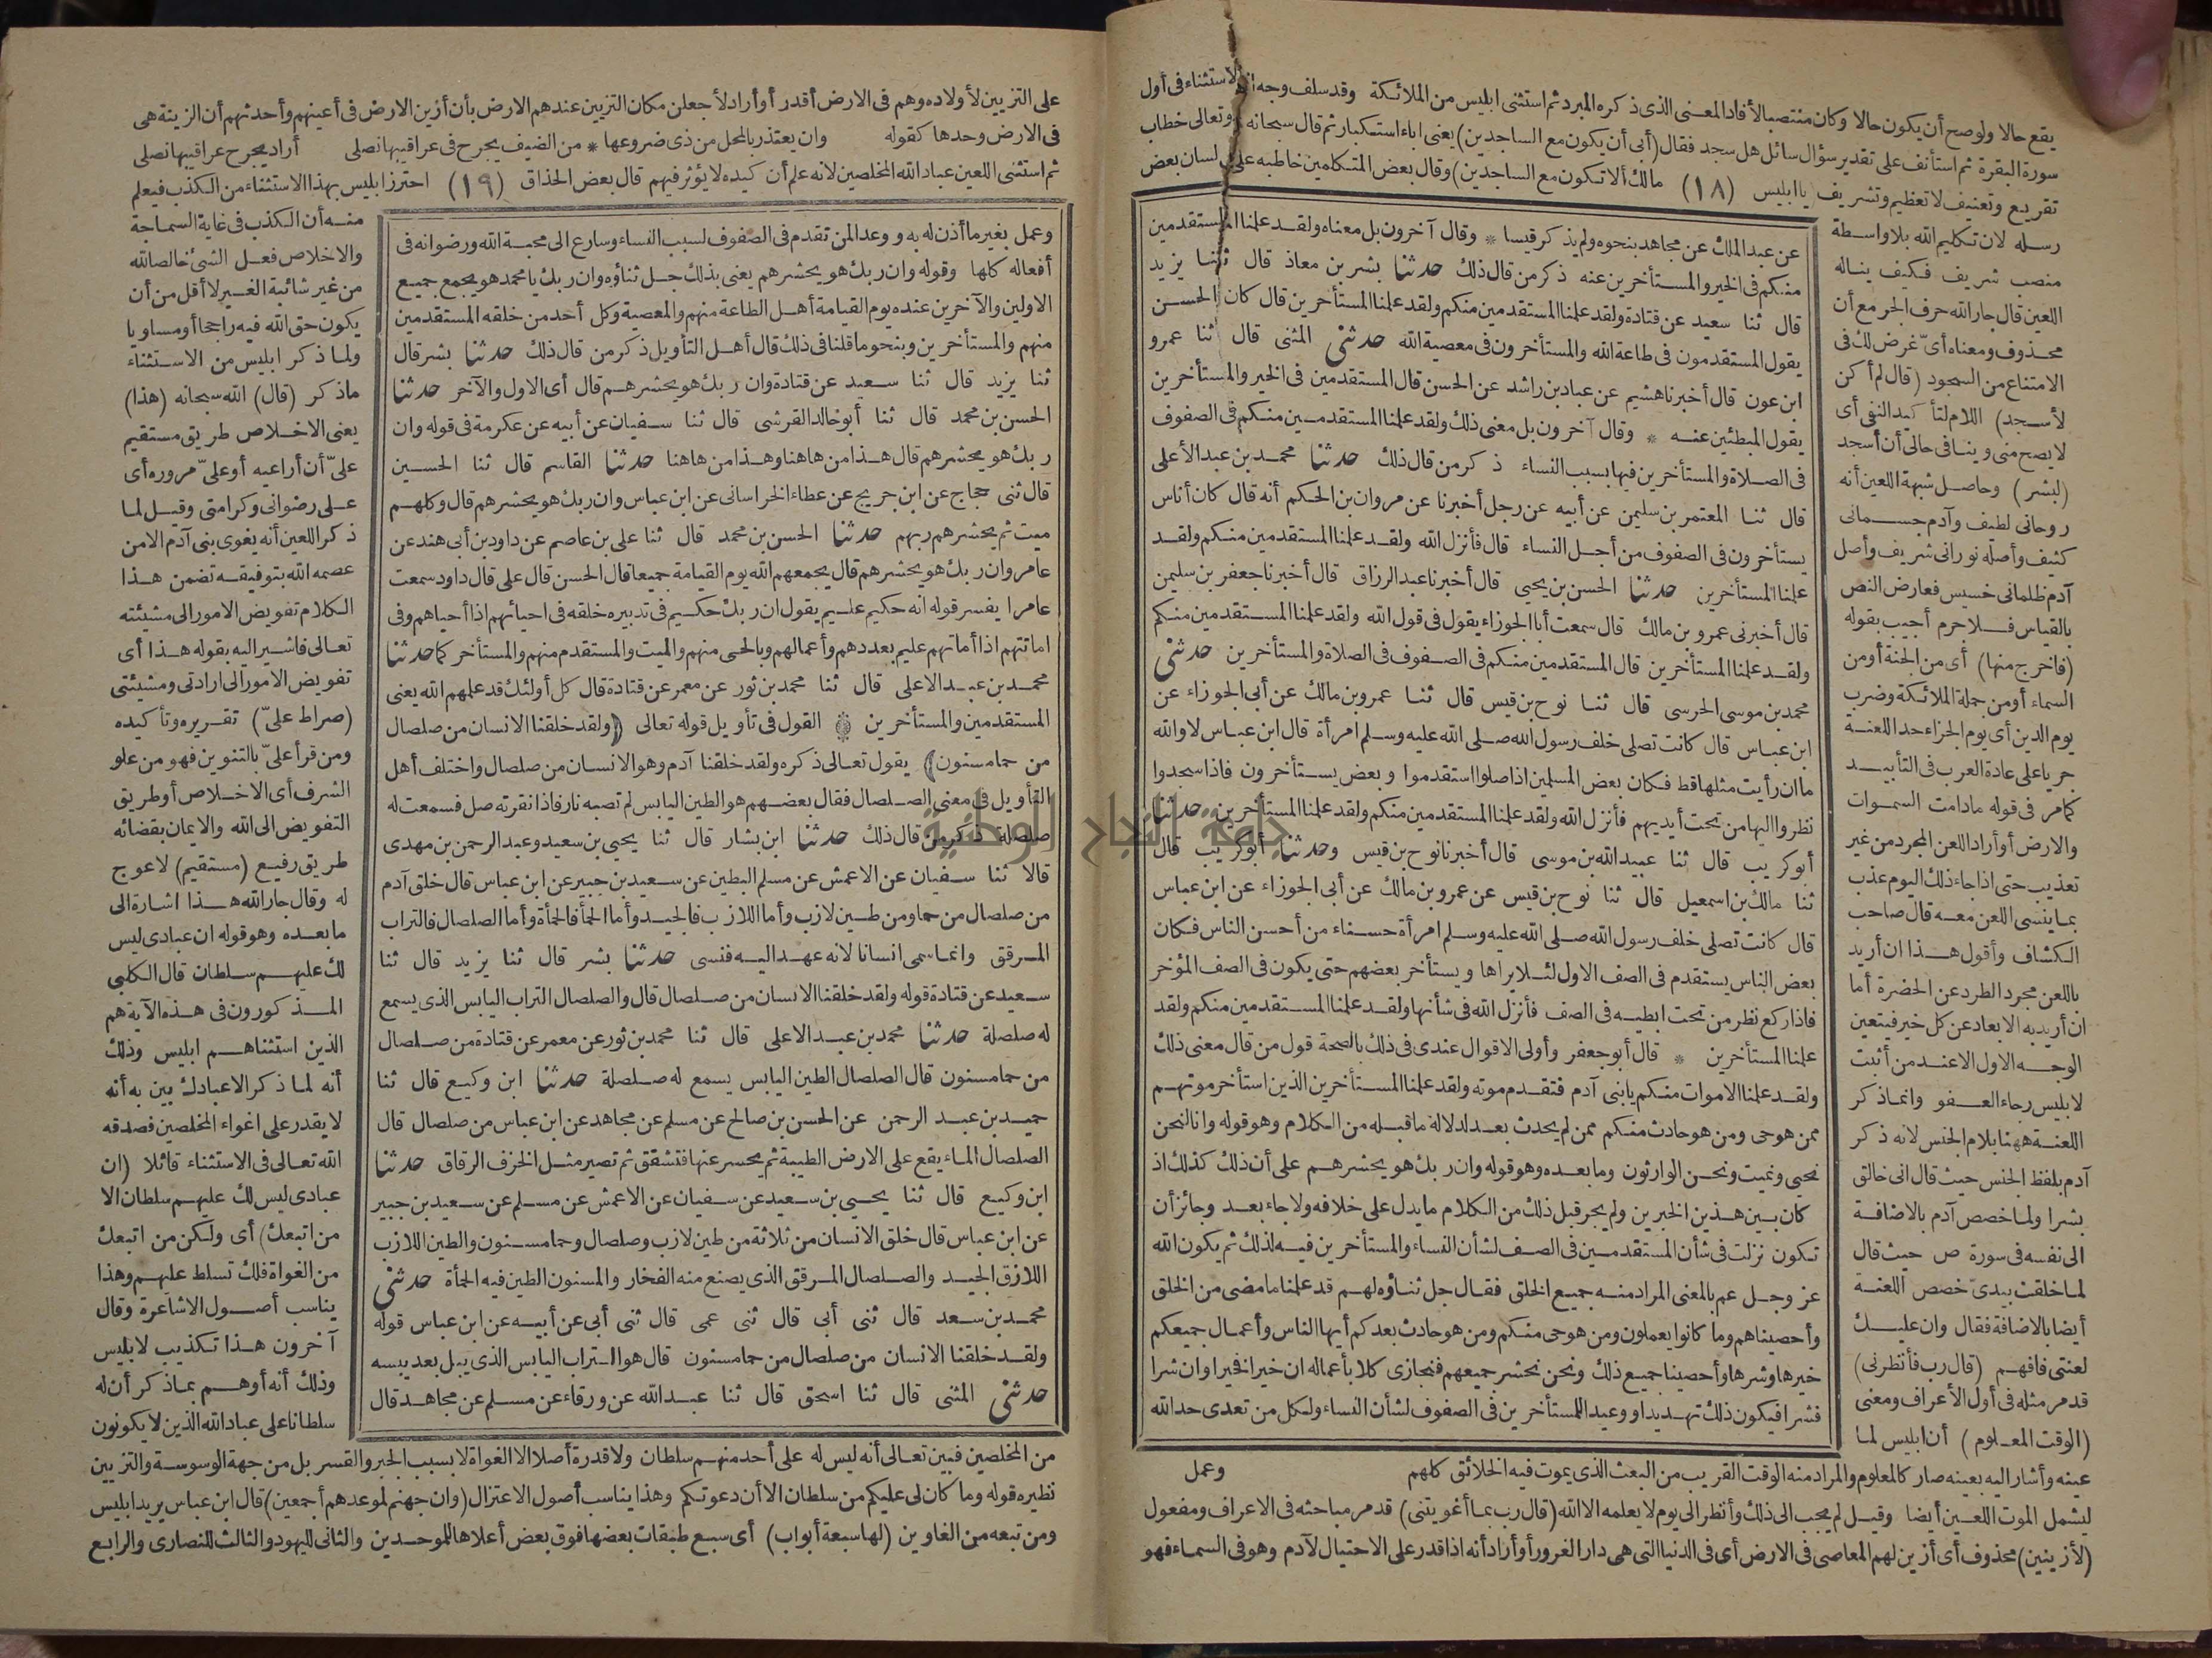 يقع حالا ولو صح أن يكون حالا وكان منتصبا لأفاد المعنى الذى ذكره المبرد ثم استثنى ابليس من الملائكة وقد سلف وجه الاستثناء فى أول
سورة البقرة ثم استأنف على تقدير سؤال سائل هل سجد فقال (أبى أن يكون مع الساجدين) يعنى اباء استكبار ثم قال سبحانه وتعالى خطاب
تقريع وتعنيف لا تعظيم وتشريف يا ابليس (١٨) مالك ألا تكون مع الساجدين) وقال بعض المتكلمين خاطبه على لسان بعض
رسله لان تكليم الله بلا واسطة
منصب شريف فكيف يناله
اللعين قال جار الله حرف الجر مع أن
محذوف ومعناه أىّ غرض لك فى
الامتناع من السجود (قال لم أكن
لأسجد) اللام لتأكيد النفى أى
لا يصح منى وينافى حالى أن أسجد
(لبشر) وحاصل شبهة اللعين أنه
روحانى لطيف وآدم جسمانى
كثيف وأصله نورانى شريف وأصل
آدم ظلمانى خسيس فعارض النص
بالقياس فلا جرم أجيب بقوله
(فاخرج منها) أى من الجنة أو من
السماء أو من جملة الملائكة وضرب
يوم الدين أى يوم الجزاء حد اللعنة
جريا على عادة العرب فى التأبيد
كما مر فى قوله ما دامت السموات
والارض أو أراد اللعن المجرد من غير
تعذيب حتى اذا جاء ذلك اليوم عذب
بما ينسى اللعن معه قال صاحب
الكشاف وأقول هذا ان أريد
باللعن مجرد الطرد عن الحضرة أما
ان أريد به الابعاد عن كل خير فيتعين
الوجه الاول الا عند من أثبت
لابليس رجاء العفو وانما ذكر
اللعنة ههنا بلام الجنس لانه ذكر
آدم بلفظ الجنس حيث قال انى خالق
بشرا ولما خصص آدم بالاضافة
الى نفسه فى سورة ص حيث قال
لما خلقت بيدىّ خصص اللعنة
أيضا بالاضافة فقال وان عليك
لعنتى فافهم (قال رب فأنظرنى)
قد مر مثله فى أول الأعراف ومعنى
(الوقت المعلوم) أن ابليس لما
عن عبد الملك عن مجاهد بنحوه ولم يذكر قيسا * وقال آخرون بل معناه ولقد علمنا المستقدمين
منكم فى الخير والمستأخرين عنه ذكر من قال ذلك حدثنا بشر بن معاذ قال ثنا يزيد
قال ثنا سعيد عن قتادة ولقد علمنا المستقدمين منكم ولقد علمنا المستأخرين قال كان الحسن
يقول المستقدمون فى طاعة الله والمستأخرون فى معصية الله حدثنى المثنى قال ثنا عمرو
ابن عون قال أخبرنا هشيم عن عباد بن راشد عن الحسن قال المستقدمين فى الخير والمستأخرين
يقول المبطئين عنه * وقال آخرون بل معنى ذلك ولقد علمنا المستقدمين منكم فى الصفوف
فى الصلاة والمستأخرين فيها بسبب النساء ذكر من قال ذلك حدثنا محمد بن عبد الأعلى
قال ثنا المعتمر بن سليمن عن أبيه عن رجل أخبرنا عن مروان بن الحكم أنه قال كان أناس
يستأخرون فى الصفوف من أجل النساء قال فأنزل الله ولقد علمنا المستقدمين منكم ولقد
علمنا المستأخرين حدثنا الحسن بن يحيى قال أخبرنا عبد الرزاق قال أخبرنا جعفر بن سليمن
قال أخبرنى عمرو بن مالك قال سمعت أبا الجوزاء يقول فى قول الله ولقد علمنا المستقدمين منكم
ولقد علمنا المستأخرين قال المستقدمين منكم فى الصفوف فى الصلاة والمستأخرين حدثنى
محمد بن موسى الحرسى قال ثنا نوح بن قيس قال ثنا عمرو بن مالك عن أبى الجوزاء عن
ابن عباس قال كانت تصلى خلف رسول الله صلى الله عليه وسلم امرأة قال ابن عباس لا والله
ما ان رأيت مثلها قط فكان بعض المسلمين اذا صلوا استقدموا وبعض يستأخرون فاذا سجدوا
نظروا اليها من تحت أيديهم فأنزل الله ولقد علمنا المستقدمين منكم ولقد علمنا المستأخرين حدثنا
أبو كريب قال ثنا عبيد الله بن موسى قال أخبرنا نوح بن قيس وحدثنا أبو كريب قال
ثنا مالك بن اسمعيل قال ثنا نوح بن قيس عن عمرو بن مالك عن أبى الجوزاء عن ابن عباس
قال كانت تصلى خلف رسول الله صلى الله عليه وسلم امرأة حسناء من أحسن الناس فكان
بعض الناس يستقدم فى الصف الاول لئلا يراها ويستأخر بعضهم حتى يكون فى الصف المؤخر
فاذا ركع نظر من تحت ابطيه فى الصف فأنزل الله فى شأنها ولقد علمنا المستقدمين منكم ولقد
علمنا المستأخرين * قال أبو جعفر وأولى الاقوال عندى فى ذلك بالصحة قول من قال معنى ذلك
ولقد علمنا الاموات منكم يا بنى آدم فتقدم موته ولقد علمنا المستأخرين الذين استأخر موتهم
ممن هو حى ومن هو حادث منكم ممن لم يحدث بعد لدلالة ما قبله من الكلام وهو قوله وانا لنحن
نحيى ونميت ونحن الوارثون وما بعده وهو قوله وان ربك هو يحشرهم على أن ذلك كذلك اذ
كان بين هذين الخبرين ولم يجر قبل ذلك من الكلام ما يدل على خلافه ولا جاء بعد وجائز أن
تكون نزلت فى شأن المستقدمين فى الصف لشأن النساء والمستأخرين فيه لذلك ثم يكون الله
عز وجل عم بالمعنى المراد منه جميع الخلق فقال جل ثناؤه لهم قد علمنا ما مضى من الخلق
وأحصيناهم وما كانوا يعملون ومن هو حى منكم ومن هو حادث بعدكم أيها الناس وأعمال جميعكم
خيرها وشرها وأحصينا جميع ذلك ونحن نحشر جميعهم فنجازى كلا بأعماله ان خيرا فخيرا وان شرا
فشرا فيكون ذلك تهديدا ووعيدا للمستأخرين فى الصفوف لشأن النساء ولكل من تعدى حد الله
وعمل
عينه وأشار اليه بعينه صار كالمعلوم والمراد منه الوقت القريب من البعث الذى يموت فيه الخلائق كلهم
ليشمل الموت اللعين أيضا وقيل لم يجب الى ذلك وأنظر الى يوم لا يعلمه الا الله (قال رب بما أغويتنى) قد مر مباحثه فى الاعراف ومفعول
(لأزينن) محذوف أى أزين لهم المعاصى فى الارض أى فى الدنيا التى هى دار الغرور أو أراد أنه اذا قدر على الاحتيال لآدم وهو فى السماء فهو
على التزيين لأولاده وهم فى الارض أقدر أو أراد لأجعلن مكان التزيين عندهم الارض بأن أزين الارض فى أعينهم وأحدثهم أن الزينة هى
فى الارض وحدها كقوله وان يعتذر بالمحل من ذى ضروعها * من الضيف يجرح فى عراقيبها نصلى أراد يجرح عراقيبها نصلى
ثم استثنى اللعين عباد الله المخلصين لانه علم أن كيده لا يؤثر فيهم قال بعض الحذاق (١٩) احترز ابليس بهذا الاستثناء من الكذب فيعلم
وعمل بغير ما أذن له به ووعدا لمن تقدم فى الصفوف لسبب النساء وسارع الى محبة الله ورضوانه فى
أفعاله كلها وقوله وان ربك هو يحشرهم يعنى بذلك جل ثناؤه وان ربك يا محمد هو يجمع جميع
الاولين والآخرين عنده يوم القيامة أهل الطاعة منهم والمعصية وكل أحد من خلقه المستقدمين
منهم والمستأخرين وبنحو ما قلنا فى ذلك قال أهل التأويل ذكر من قال ذلك حدثنا بشر قال
ثنا يزيد قال ثنا سعيد عن قتادة وان ربك هو يحشرهم قال أى الاول والآخر حدثنا
الحسن بن محمد قال ثنا أبو خالد القرشى قال ثنا سفيان عن أبيه عن عكرمة فى قوله وان
ربك هو يحشرهم قال هذا من هاهنا وهذا من هاهنا حدثنا القاسم قال ثنا الحسين
قال ثنى حجاج عن ابن جريج عن عطاء الخراسانى عن ابن عباس وان ربك هو يحشرهم قال وكلهم
ميت ثم يحشرهم ربهم حدثنا الحسن بن محمد قال ثنا على بن عاصم عن داود بن أبى هند عن
عامر وان ربك هو يحشرهم قال يجمعهم الله يوم القيامة جميعا قال الحسن قال على قال داود سمعت
عامرا يفسر قوله انه حكيم عليم يقول ان ربك حكيم فى تدبيره خلقه فى احيائهم اذا أحياهم وفى
اماتتهم اذا أماتهم عليم بعددهم وأعمالهم وبالحى منهم والميت والمستقدم منهم والمستأخر كما حدثنا
محمد بن عبد الاعلى قال ثنا محمد بن ثور عن معمر عن قتادة قال كل أولئك قد علمهم الله يعنى
المستقدمين والمستأخرين ۞ القول فى تأويل قوله تعالى (ولقد خلقنا الانسان من صلصال
من حما مسنون) يقول تعالى ذكره ولقد خلقنا آدم وهو الانسان من صلصال واختلف أهل
التأويل فى معنى الصلصال فقال بعضهم هو الطين اليابس لم تصبه نار فاذا نقرته صل فسمعت له
صلصلة ذكر من قال ذلك حدثنا ابن بشار قال ثنا يحيى بن سعيد وعبد الرحمن بن مهدى
قالا ثنا سفيان عن الاعمش عن مسلم البطين عن سعيد بن جبير عن ابن عباس قال خلق آدم
من صلصال من حما ومن طين لازب وأما اللازب فالجيد وأما الحمأ فالحمأة وأما الصلصال فالتراب
المرقق وانما سمى انسانا لانه عهد اليه فنسى حدثنا بشر قال ثنا يزيد قال ثنا
سعيد عن قتادة قوله ولقد خلقنا الانسان من صلصال قال والصلصال التراب اليابس الذى يسمع
له صلصلة حدثنا محمد بن عبد الاعلى قال ثنا محمد بن ثور عن معمر عن قتادة من صلصال
من حما مسنون قال الصلصال الطين اليابس يسمع له صلصلة حدثنا ابن وكيع قال ثنا
حميد بن عبد الرحمن عن الحسن بن صالح عن مسلم عن مجاهد عن ابن عباس من صلصال قال
الصلصال الماء يقع على الارض الطيبة ثم يحسر عنها فتشقق ثم تصير مثل الخزف الرقاق حدثنا
ابن وكيع قال ثنا يحيى بن سعيد عن سفيان عن الاعمش عن مسلم عن سعيد بن جبير
عن ابن عباس قال خلق الانسان من ثلاثة من طين لازب وصلصال وحما مسنون والطين اللازب
اللازق الجيد والصلصال المرقق الذى يصنع منه الفخار والمسنون الطين فيه الحمأة حدثنى
محمد بن سعد قال ثنى أبى قال ثنى عمى قال ثنى أبى عن أبيه عن ابن عباس قوله
ولقد خلقنا الانسان من صلصال من حما مسنون قال هو التراب اليابس الذى يبل بعد يبسه
حدثنى المثنى قال ثنا اسحق قال ثنا عبد الله عن ورقاء عن مسلم عن مجاهد قال
منه أن الكذب فى غاية السماجة
والاخلاص فعل الشئ خالصا لله
من غير شائبة الغير لا أقل من أن
يكون حق الله فيه راجحا أو مساويا
ولما ذكر ابليس من الاستثناء
ما ذكر (قال) الله سبحانه (هذا)
يعنى الاخلاص طريق مستقيم
علىّ أن أراعيه أو علىّ مروره أى
على رضوانى وكرامتى وقيل لما
ذكر اللعين أنه يغوى بنى آدم الا من
عصمه الله بتوفيقه تضمن هذا
الكلام تفويض الامور الى مشيئته
تعالى فأشير اليه بقوله هذا أى
تفويض الامور الى ارادتى ومشيئتى
(صراط علىّ) تقريره وتأكيده
ومن قرأ علىّ بالتنوين فهو من علو
الشرف أى الاخلاص أو طريق
التفويض الى الله والايمان بقضائه
طريق رفيع (مستقيم) لا عوج
له وقال جار الله هذا اشارة الى
ما بعده وهو قوله ان عبادى ليس
لك عليهم سلطان قال الكلبى
المذكورون فى هذه الآية هم
الذين استثناهم ابليس وذلك
أنه لما ذكر الا عبادك بين به أنه
لا يقدر على اغواء المخلصين فصدقه
الله تعالى فى الاستثناء قائلا (ان
عبادى ليس لك عليهم سلطان الا
من اتبعك) أى ولكن من اتبعك
من الغواة فلك تسلط عليهم وهذا
يناسب أصول الاشاعرة وقال
آخرون هذا تكذيب لابليس
وذلك أنه أوهم بما ذكر أن له
سلطانا على عباد الله الذين لا يكونون
من المخلصين فبين تعالى أنه ليس له على أحد منهم سلطان ولا قدرة أصلا الا الغواة لا بسبب الجبر والقسر بل من جهة الوسوسة والتزيين
نظيره قوله وما كان لى عليكم من سلطان الا أن دعوتكم وهذا يناسب أصول الاعتزال (وان جهنم لموعدهم أجمعين) قال ابن عباس يريد ابليس
ومن تبعه من الغاوين (لها سبعة أبواب) أى سبع طبقات بعضها فوق بعض أعلاها للموحدين والثانى لليهود والثالث للنصارى والرابع
جامعة النجاح الوطنية